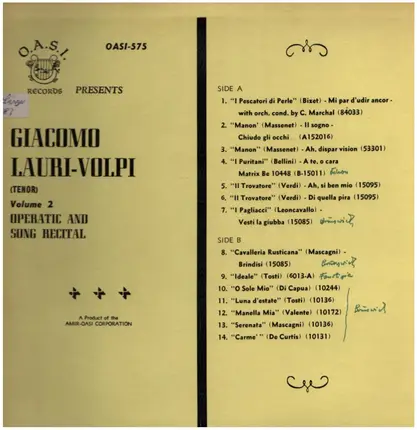 O.A.S.I.
RECORDS
OASI-575
PRESENTS
GIACOMO
LAURI-VOLPI
(TENOR)
Volume 2
OPERATIC AND
SONG RECITAL
A Product of the
AMIR-OASI CORPORATION
SIDE A
1. "I Pescatori di Perle" (Bizet) - Mi par d'udir ancor -
with orch. cond. by C. Marchal (84033)
2. "Manon" (Massenet) - Il sogno -
Chiudo gli occhi (A152016)
3. "Manon" (Massenet) - Ah, dispar vision (53301)
4. "I Puritani" (Bellini) - A te, o cara
Matrix Be 10448 (B-15011)
5. "Il Trovatore" (Verdi) - Ah, si ben mio (15095)
6. "Il Trovatore" (Verdi) - Di quella pira (15095)
7. "I Pagliacci" (Leoncavallo) -
Vesti la giubba (15085)
SIDE B
8. "Cavalleria Rusticana" (Mascagni) -
Brindisi (15085)
9. "Ideale" (Tosti) (6013-A)
10. "O Sole Mio" (Di Capua) (10244)
11. "Luna d'estate" (Tosti) (10136)
12. "Manella Mia" (Valente) (10172)
13. "Serenata" (Mascagni) (10136)
14. "Carme'" (De Curtis) (10131)